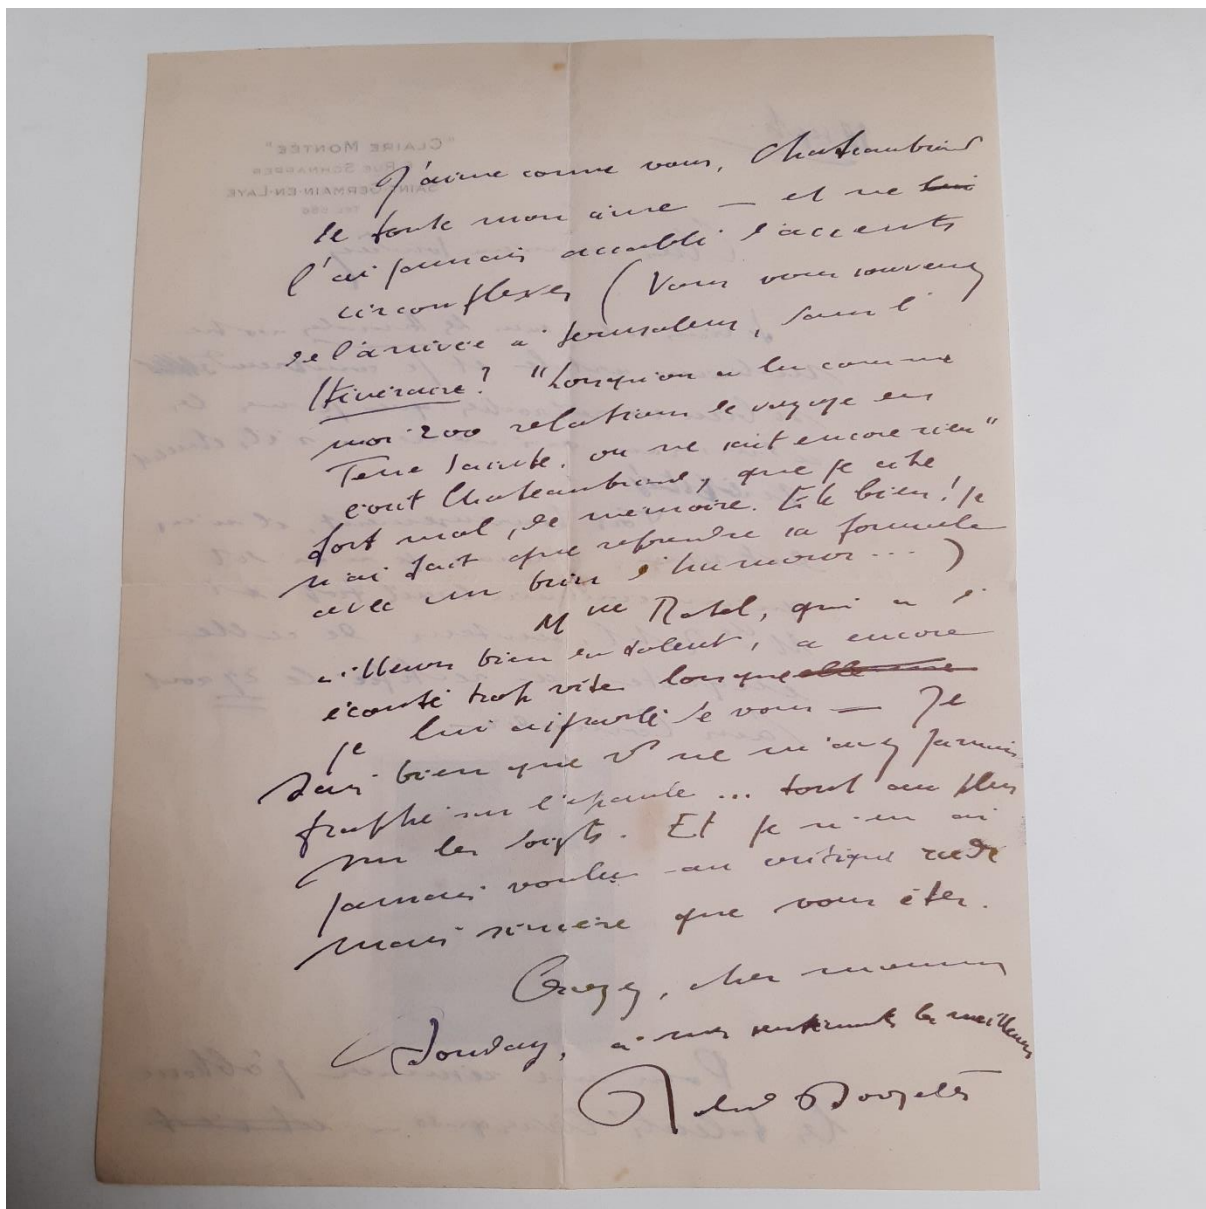 J'aime comme vous, Chateaubriand
de toute mon âme — et ne lui
l'ai jamais accablé d'accents
circonflexes (Vous vous souvenez
de l'arrivée à Jerusalem, dans l'
Itinéraire? "Lorsqu'on a lu comme
moi 200 relations de voyage en
Terre Sainte, on ne sait encore rien"
écrit Chateaubriand, que je cite
fort mal, de mémoire. Eh bien! je
n'ai fait que reprendre sa formule
avec un brin d'humour...)
Mme Ratel, qui a d'
ailleurs bien du talent, a encore
écouté trop vite lorsque elle me
je lui ai parlé de vous — Je
sais bien que vs ne m'avez jamais
frappé sur l'épaule ... tout au plus
sur les doigts. Et je n'en ai
jamais voulu au critique rude
mais sincère que vous êtes.
Croyez, cher monsieur
Souday, à mes sentiments les meilleurs
Roland Dorgelès
"CLAIRE MONTÉE"
RUE SCHNAPPER
SAINT-GERMAIN-EN-LAYE